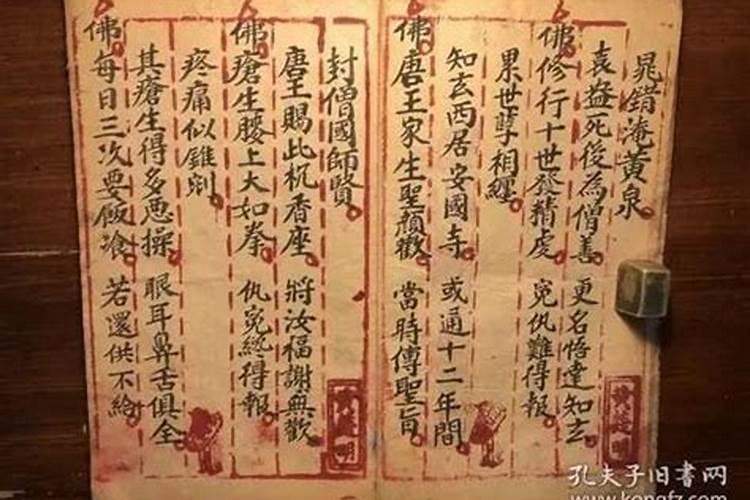 晁錯淹黃泉
袁益死後為僧善 更名悟達知玄
佛 修行十世發精虔 冤仇難得報
累世孽相纏
知玄西居安國寺 或通十二年間
佛 唐王家生聖顏歡 當時傳聖旨
封僧國師賢
唐王賜此香座 將汝福謝無歡
佛 瘡生腰上大如拳 仇冤終得報
疼痛似錐剜
其瘡生得多惡操 眼耳鼻舌俱全
佛 每日三次要飯飡 若還供不給
孔夫子旧书网
www.kongfz.com